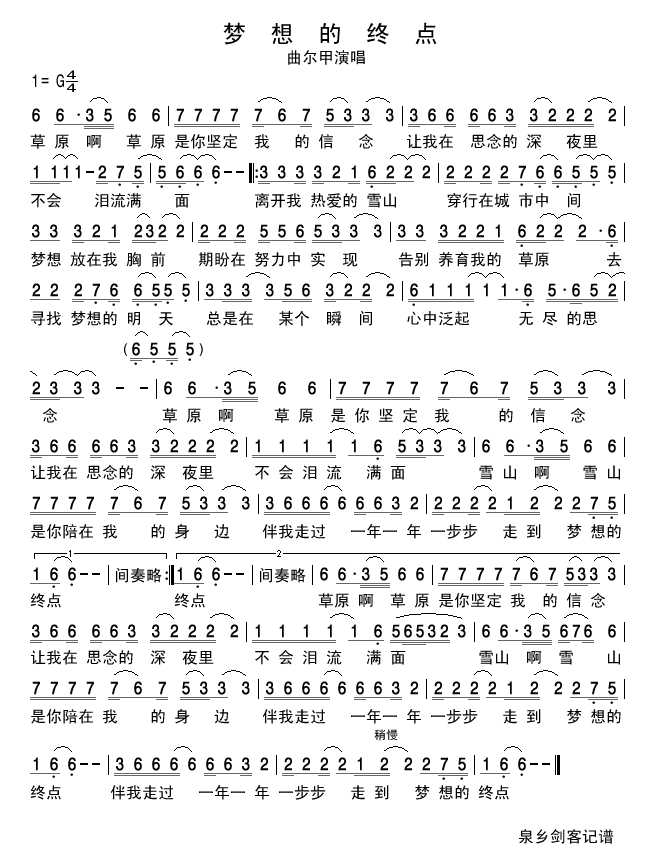 梦想的终点
曲尔甲演唱
1= G 4/4
6 6·35 6 6 | 7777 7 6 7 533 3 | 366 663 3222 2 |
草原啊 草原 是你坚定 我 的信 念 让我在 思念的深 夜里
1 111 1- 275 | 5666 6-- |: 333 332 16222 | 222276 6555 5 |
不会 泪流满 面 离开我 热爱的 雪山 穿行在城 市中 间
33 321 232 2 | 222 556 533 3 | 33 3221 622 2·6 |
梦想 放在我 胸前 期盼在 努力中 实 现 告别 养育我的 草原 去
22 276 655 5 | 333 356 322 2 | 6111 1 1·6 5·652 |
寻找 梦想的 明 天 总是在 某个 瞬 间 心中泛起 无 尽的思
(6 5 5 5)
23 3 3 - - | 6 6·35 6 6 | 7777 7 6 7 533 3 |
念 草原啊 草原 是你坚定 我 的信 念
366 663 3222 2 | 1111 1 6 533 3 | 6 6·35 6 6 |
让我在 思念的 深 夜里 不会泪流 满面 雪山啊 雪山
7777 767 533 3 | 36666 6632 | 2222122 275 |
是你陪在 我 的 身 边 伴我走过 一年一年 一步步 走到 梦 想的
1 2
1 6 6-- | 间奏略 :| 1 6 6-- | 间奏略 | 66·35 66 | 7777 767 533 3 |
终点 终点 草原啊 草原 是你坚定 我 的信念
366 663 3222 2 | 1111 1 6 56532 3 | 66·35 676 6 |
让我在 思念的 深 夜里 不会泪流 满面 雪山 啊 雪 山
7777 767 533 3 | 36666 6632 | 2222122 275 |
是你陪在 我 的 身 边 伴我走过 一年一年 一步步 走到 梦 想的
稍慢
1 6 6-- | 36666 6632 | 2222122 275 | 1 6 6-- ||
终点 伴我走过 一年一年 一步步 走到 梦 想的 终点
泉乡剑客记谱